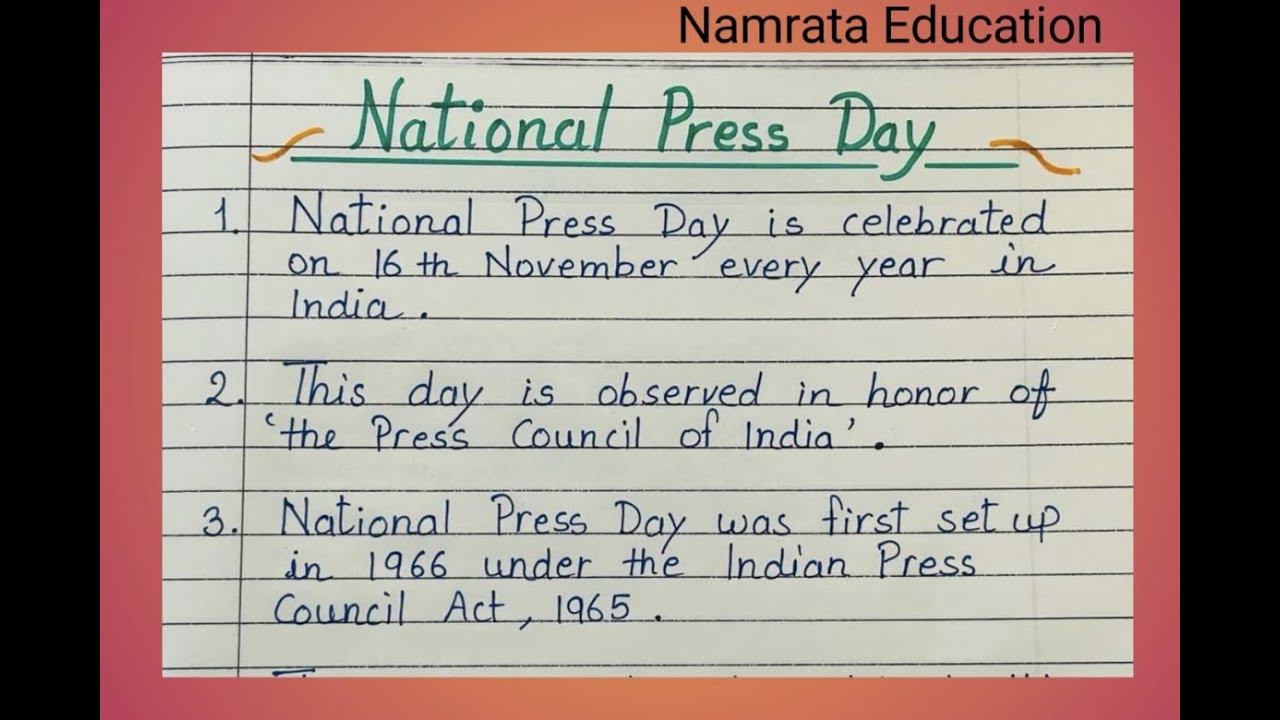 Namrata Education
National Press Day
1. National Press Day is celebrated
on 16th November every year in
India.
2. This day is observed in honor of
'the Press Council of India'.
3. National Press Day was first set up
in 1966 under the Indian Press
Council Act, 1965.